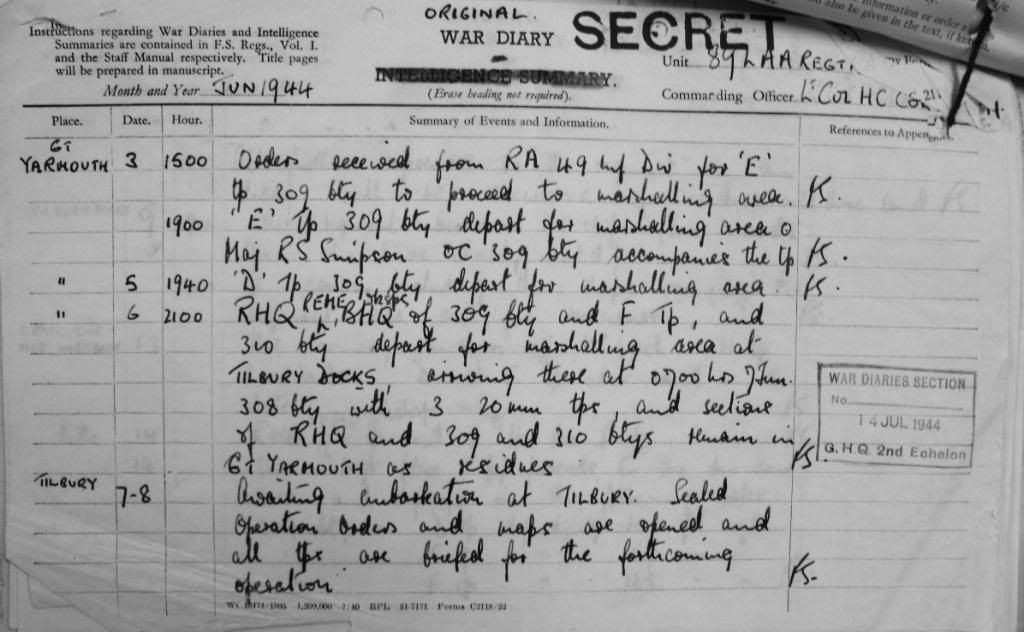 ORIGINAL.
WAR DIARY
SECRET
Instructions regarding War Diaries and Intelligence
Summaries are contained in F.S. Regs., Vol. I.
and the Staff Manual respectively. Title pages
will be prepared in manuscript.
INTELLIGENCE SUMMARY.
(Erase heading not required).
Month and Year JUN 1944
Unit 89 LAA REGT.
Commanding Officer Lt Col HC
information or order
also be given in the text, if
Place. Date. Hour. Summary of Events and Information. References to Appen
GT
YARMOUTH 3 1500 Orders received from RA 49 Inf Div for 'E'
tp 309 bty to proceed to marshalling area.
1900 'E' tp 309 bty depart for marshalling area
Maj RS Simpson OC 309 bty accompanies the tp
" 5 1940 'D' Tp 309 bty depart for marshalling area.
" 6 2100 RHQ, REME BHQ of 309 bty and F Tp, and
310 bty depart for marshalling area at
TILBURY DOCKS, arriving there at 0700 hrs 7 Jun.
308 bty with 3 20 mm tps, and sections
of RHQ and 309 and 310 btys remain in
GT YARMOUTH as residues
TILBURY 7-8 Awaiting embarkation at TILBURY. Sealed
Operation Orders and maps are opened and
all tps are briefed for the forthcoming
operation
WAR DIARIES SECTION
No.
14 JUL 1944
G.H.Q. 2nd Echelon
1,200,000 7/40 BPL 51-7171 Forms C2118/22